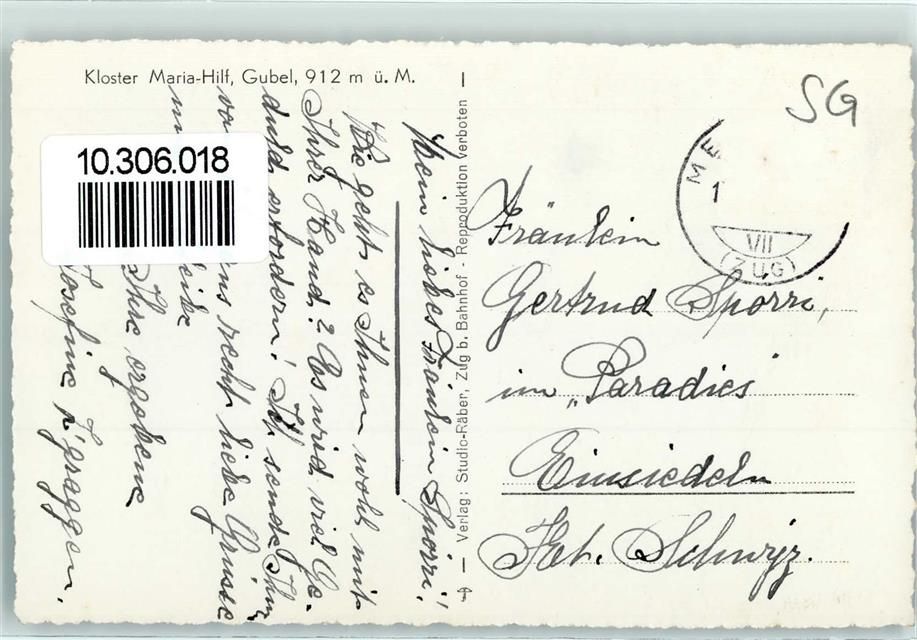 Kloster Maria-Hilf, Gubel, 912 m ü. M.
10.306.018
Mein liebes Fräulein Spörri!
Wie geht es Ihnen wohl mit
Ihrer Hand? Es wird viel Ge-
duld erfordern! Ich sende Ihnen
von uns recht liebe Grüsse
Ihre ergebene
Josefine Z'graggen.
Verlag: Studio-Räber, Zug b. Bahnhof - Reproduktion verboten
SG
ME
1
VII
(ZUG)
Fräulein
Gertrud Spörri,
im „Paradies"
Einsiedeln
Kt. Schwyz.